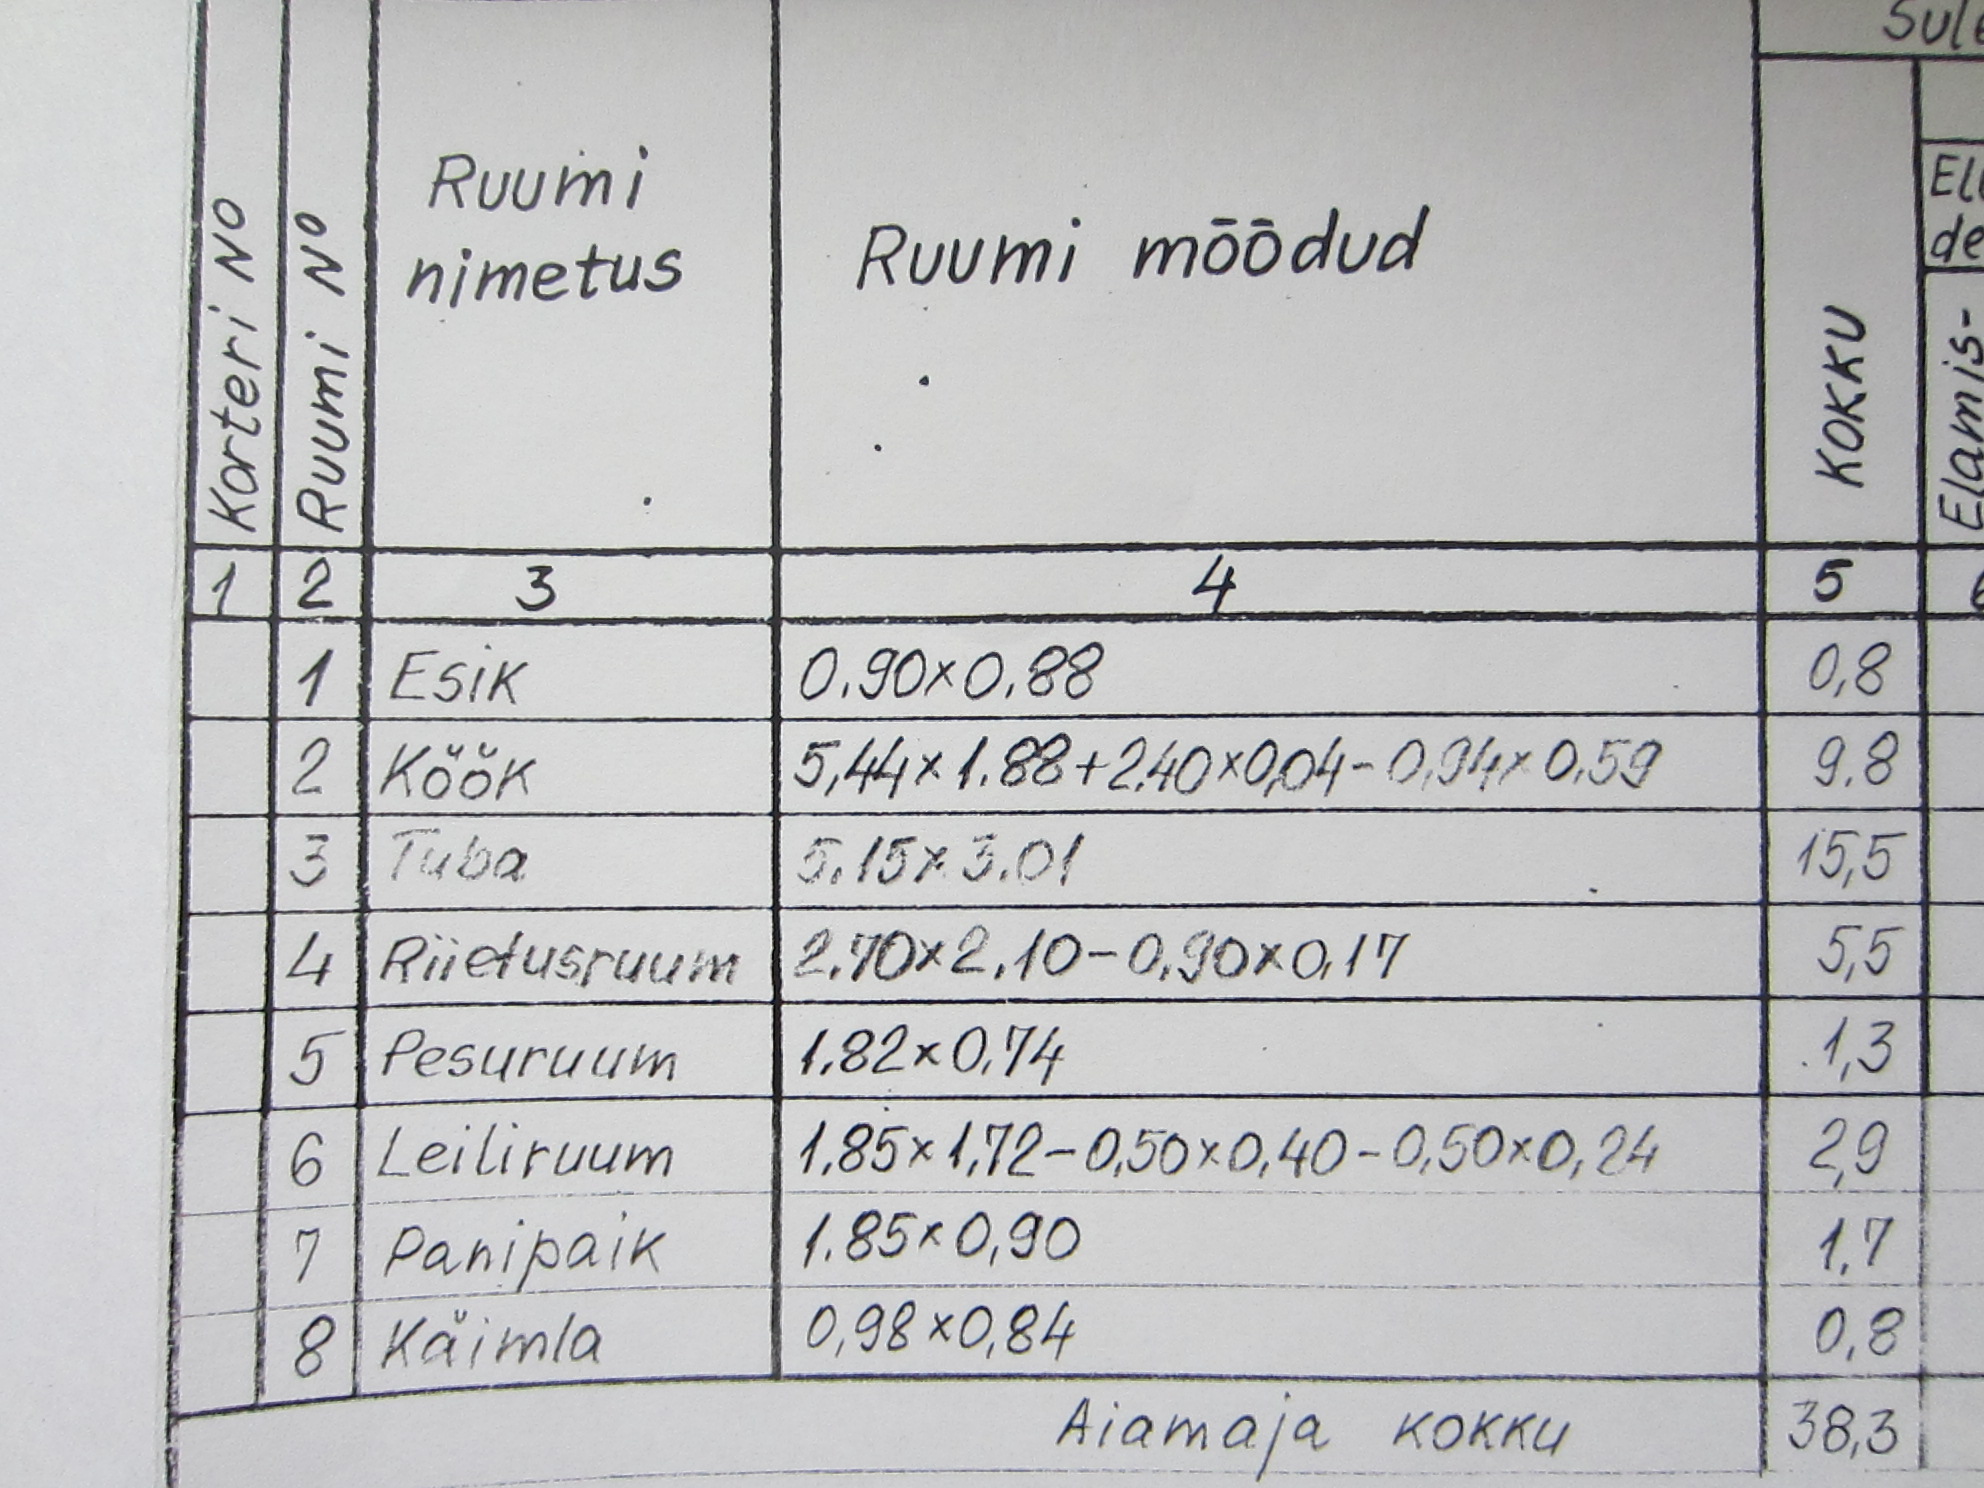 Sule
Korteri No
Ruumi No
Ruumi
nimetus
Ruumi mõõdud
KOKKU
Elamis-
1 2 3 4 5
1 Esik 0.90×0.88 0,8
2 Köök 5,44×1.88+2.40×0,04-0,94×0.59 9.8
3 Tuba 5.15×3.01 15,5
4 Riietusruum 2.70×2.10-0.90×0.17 5,5
5 Pesuruum 1.82×0.74 1,3
6 Leiliruum 1.85×1.72-0,50×0,40-0,50×0,24 2,9
7 Panipaik 1.85×0,90 1,7
8 Käimla 0,98×0,84 0,8
Aiamaja KOKKU 38,3